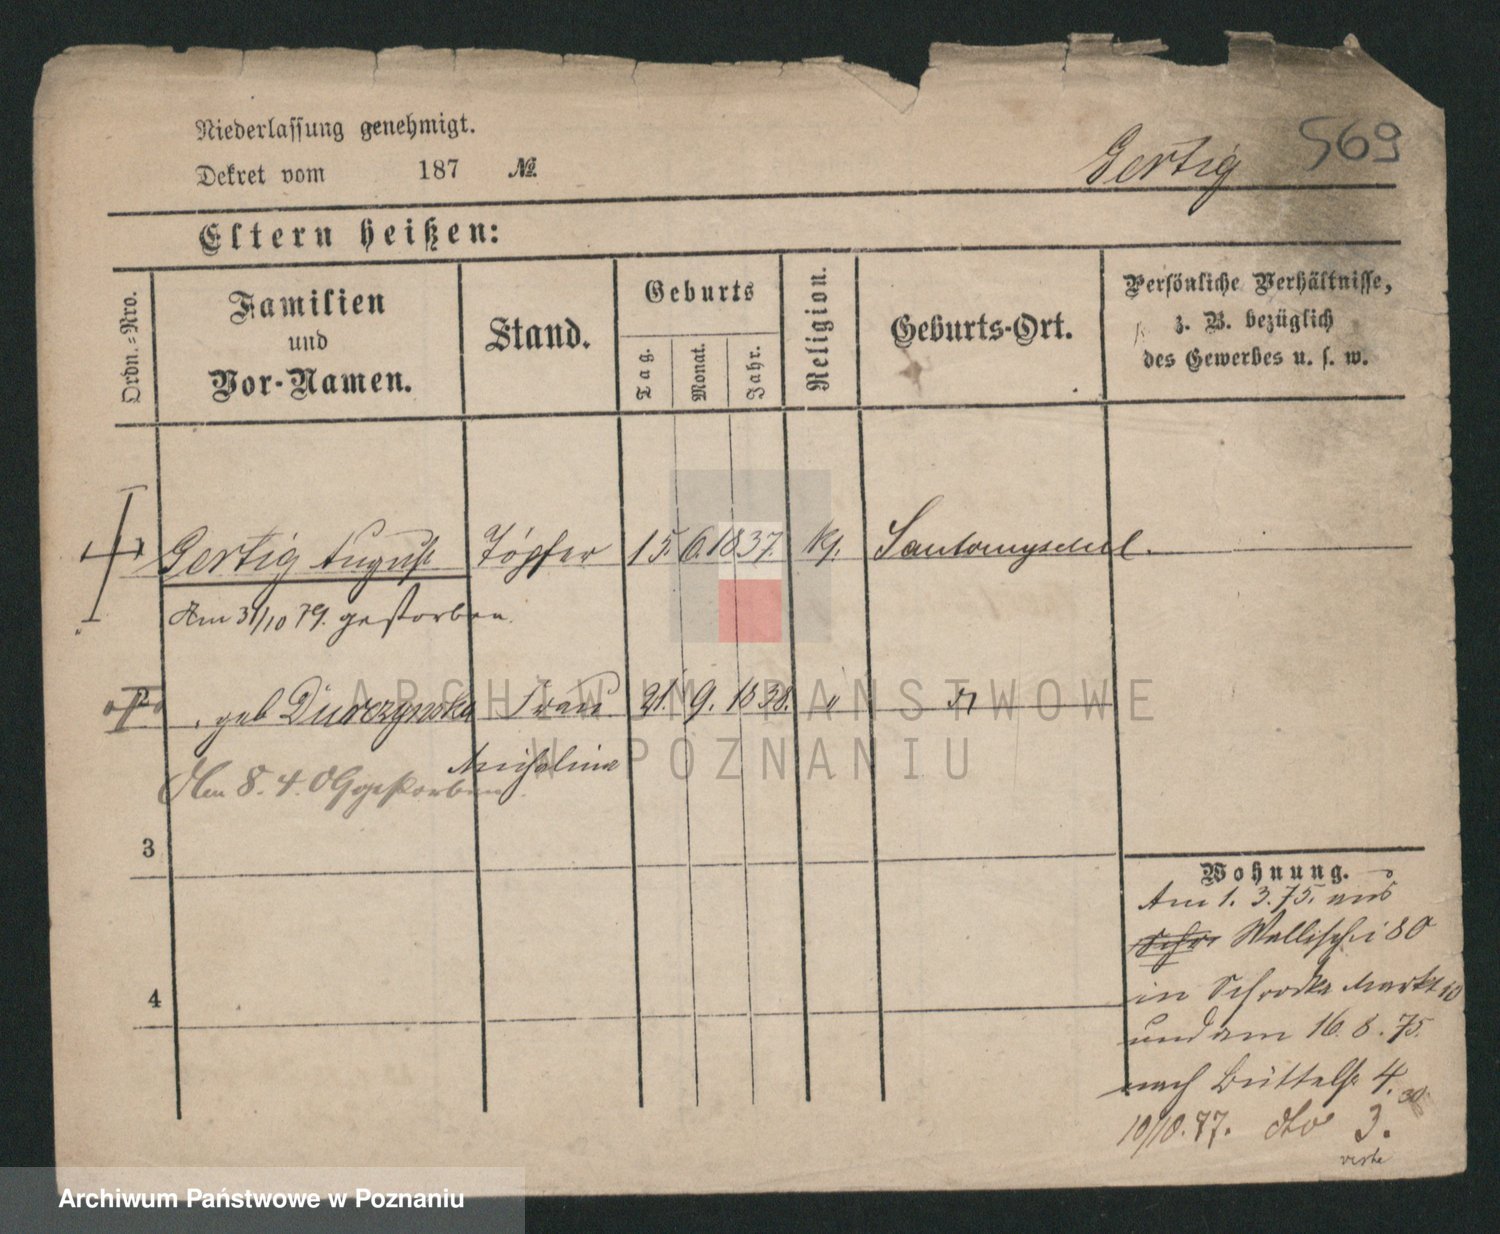 Niederlassung genehmigt.
Dekret vom 187 №
Gertig 569
Eltern heißen:
Ordn.-Nro.
Familien
und
Vor-Namen.
Stand.
Geburts
Tag.
Monat.
Jahr.
Religion.
Geburts-Ort.
Persönliche Verhältnisse,
z. B. bezüglich
des Gewerbes u. s. w.
Gertig August Töpfer 15. 6. 1837. kt.
Am 31/10 79. gestorben.
geb Durczynska Frau 21. 9. 1838. "
Michalina
Am 8. 4. 09 gestorben.
3
4
Wohnung.
Am 1. 3. 75. aus
Wallischei 80
in Schrodka Markt 10
und am 16. 8. 75.
nach Büttelstr 4.
10/10. 77. dto 3.
verte
ARCHIWUM PAŃSTWOWE
W POZNANIU
Archiwum Państwowe w Poznaniu